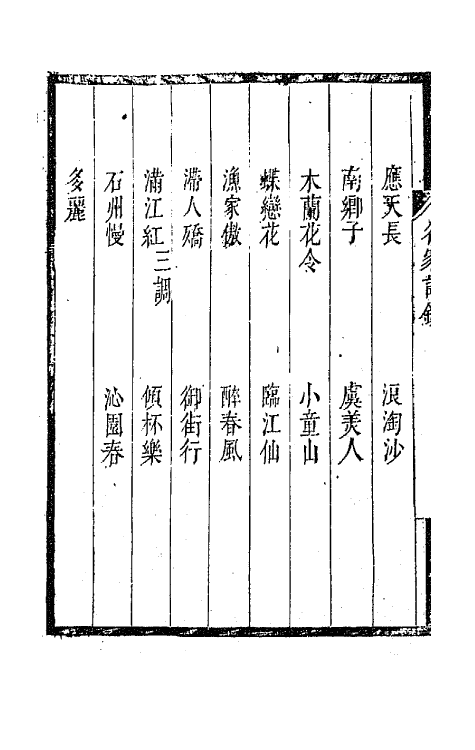 應天長　浪淘沙
南鄉子　虞美人
木蘭花令　小童山
蝶戀花　臨江仙
漁家傲　醉春風
殢人嬌　御街行
滿江紅三調　傾杯樂
石州慢　沁園春
多麗